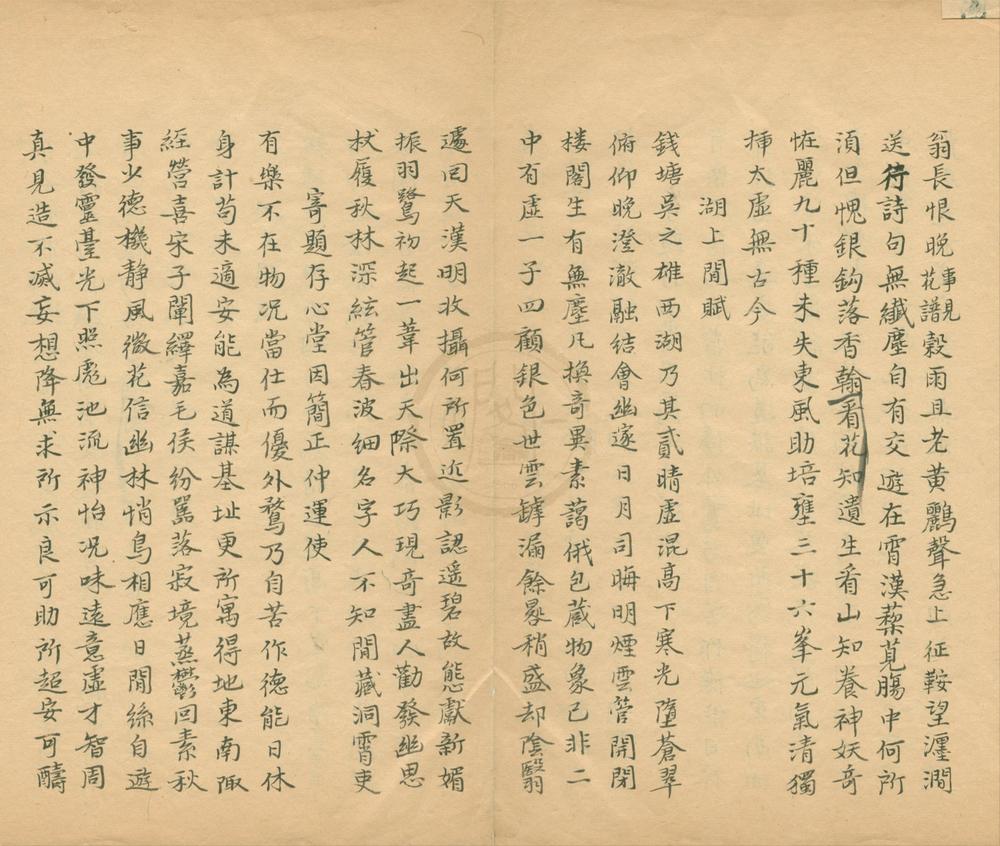 翁長恨晚事見花譜穀雨且老黃鸝聲急上征鞍望瀍澗
送待詩句無纖塵自有交遊在霄漢藜莧腸中何所
須但愧銀鈎落杏翰看花知遺生看山知養神妖奇
恠麗九十種未失東風助培壅三十六峯元氣清獨
挿太虛無古今
湖上閒賦
錢塘吳之雄西湖乃其貳晴虛混髙下寒光墮蒼翠
俯仰晚澄澈融結會幽邃日月司晦明煙雲管開閉
楼閣生有無塵凡換奇異素藹俄包蔵物象已非二
中有虛一子四顧銀色世雲罅漏餘晷稍盛却陰翳
遽回天漢明收攝何所置近影認遥碧故態獻新媚
振羽鷺初起一葦出天際大巧現奇盡人勸發幽思
杖履秋林深絃管春波細名字人不知閒藏洞霄吏
寄題存心堂因簡正仲運使
有樂不在物况當仕而優外騖乃自苦作德能日休
身計苟未適安能為道謀基址更所寓得地東南陬
経營喜宋子闡繹嘉毛侯紛囂落寂境蒸鬱回素秋
事少德機靜風微花信幽林悄鳥相應日閒絲自遊
中發靈䑓光下照彪池流神怡况味遠意虛才智周
真見造不滅妄想降無求所示良可助所超安可醻